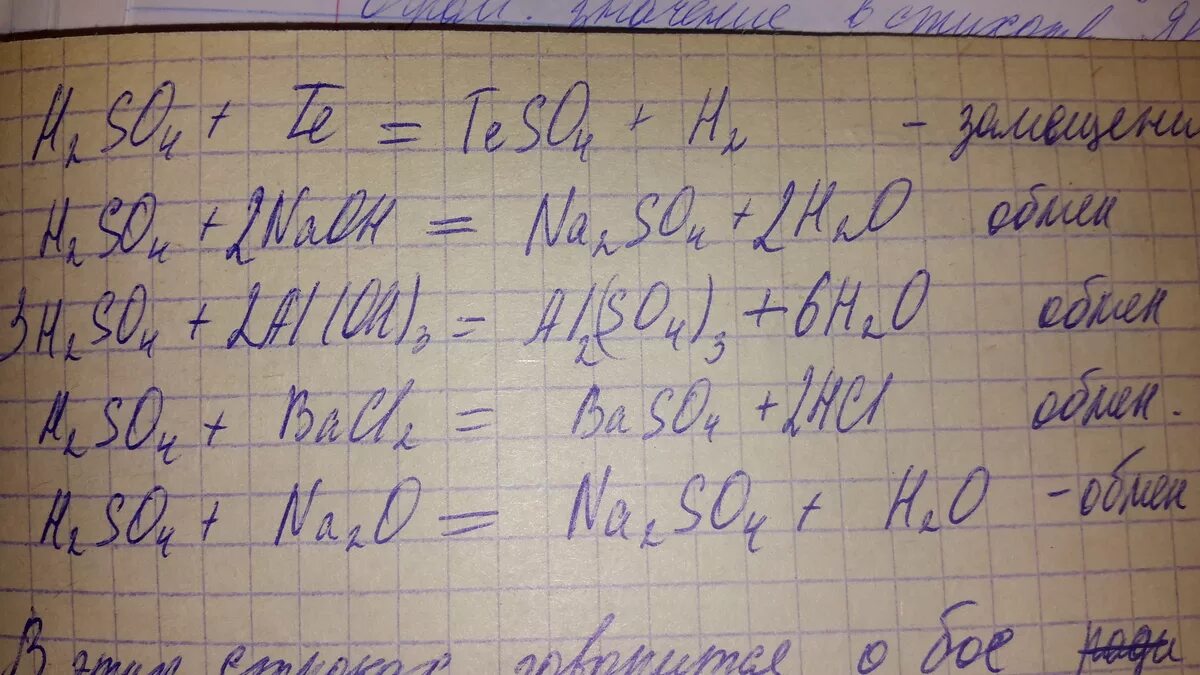 значение в стихотв
H₂SO₄ + Te = TeSO₄ + H₂ - замещени
H₂SO₄ + 2NaOH = Na₂SO₄ + 2H₂O обмен
3H₂SO₄ + 2Al(OH)₃ = Al₂(SO₄)₃ + 6H₂O обмен
H₂SO₄ + BaCl₂ = BaSO₄ + 2HCl обмен.
H₂SO₄ + Na₂O = Na₂SO₄ + H₂O - обмен
В этих строках говорится о бое